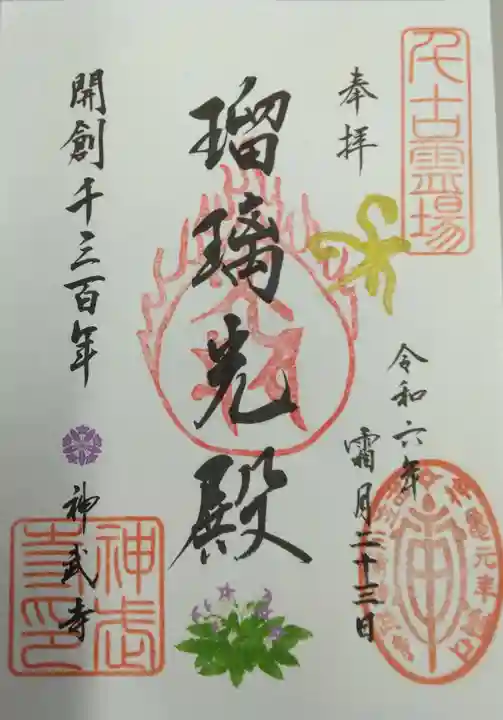 千古霊場
奉拝
令和六年
霜月二十三日
瑠璃光殿
開創千三百年
神武寺
神武
寺印